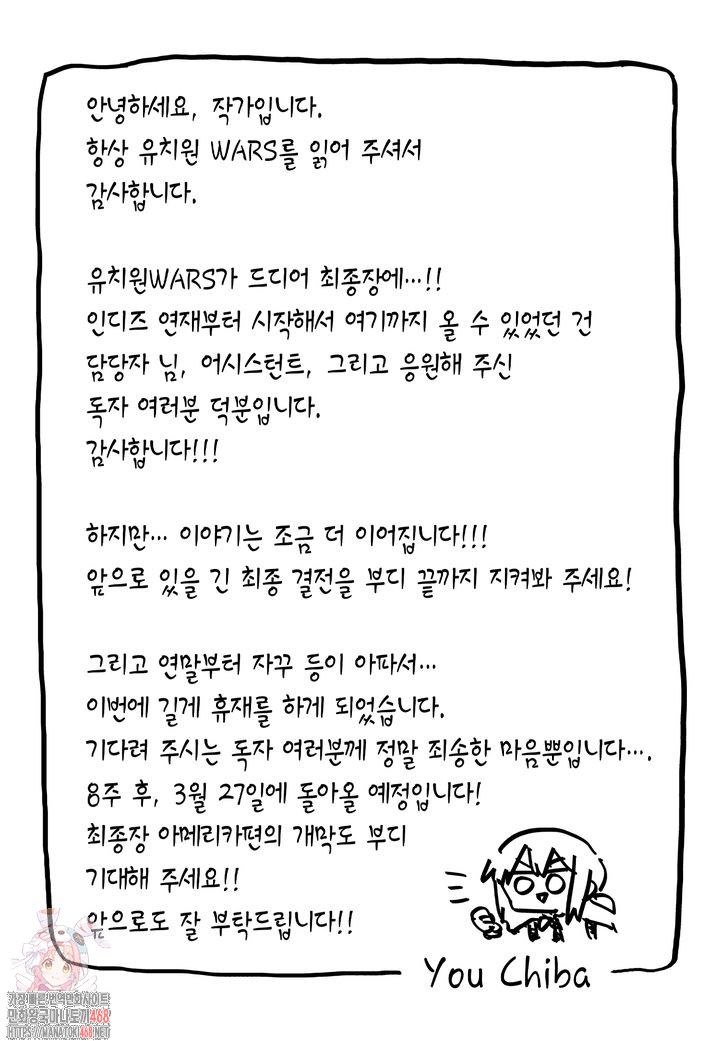 안녕하세요, 작가입니다.
항상 유치원 WARS를 읽어 주셔서
감사합니다.
유치원WARS가 드디어 최종장에…!!
인디즈 연재부터 시작해서 여기까지 올 수 있었던 건
담당자 님, 어시스턴트, 그리고 응원해 주신
독자 여러분 덕분입니다.
감사합니다!!!
하지만… 이야기는 조금 더 이어집니다!!!
앞으로 있을 긴 최종 결전을 부디 끝까지 지켜봐 주세요!
그리고 연말부터 자꾸 등이 아파서…
이번에 길게 휴재를 하게 되었습니다.
기다려 주시는 독자 여러분께 정말 죄송한 마음뿐입니다….
8주 후, 3월 27일에 돌아올 예정입니다!
최종장 아메리카편의 개막도 부디
기대해 주세요!!
앞으로도 잘 부탁드립니다!!
You Chiba
가장빠른번역만화사이트
만화왕국마나토끼468
HTTPS://MANATOKI468.NET